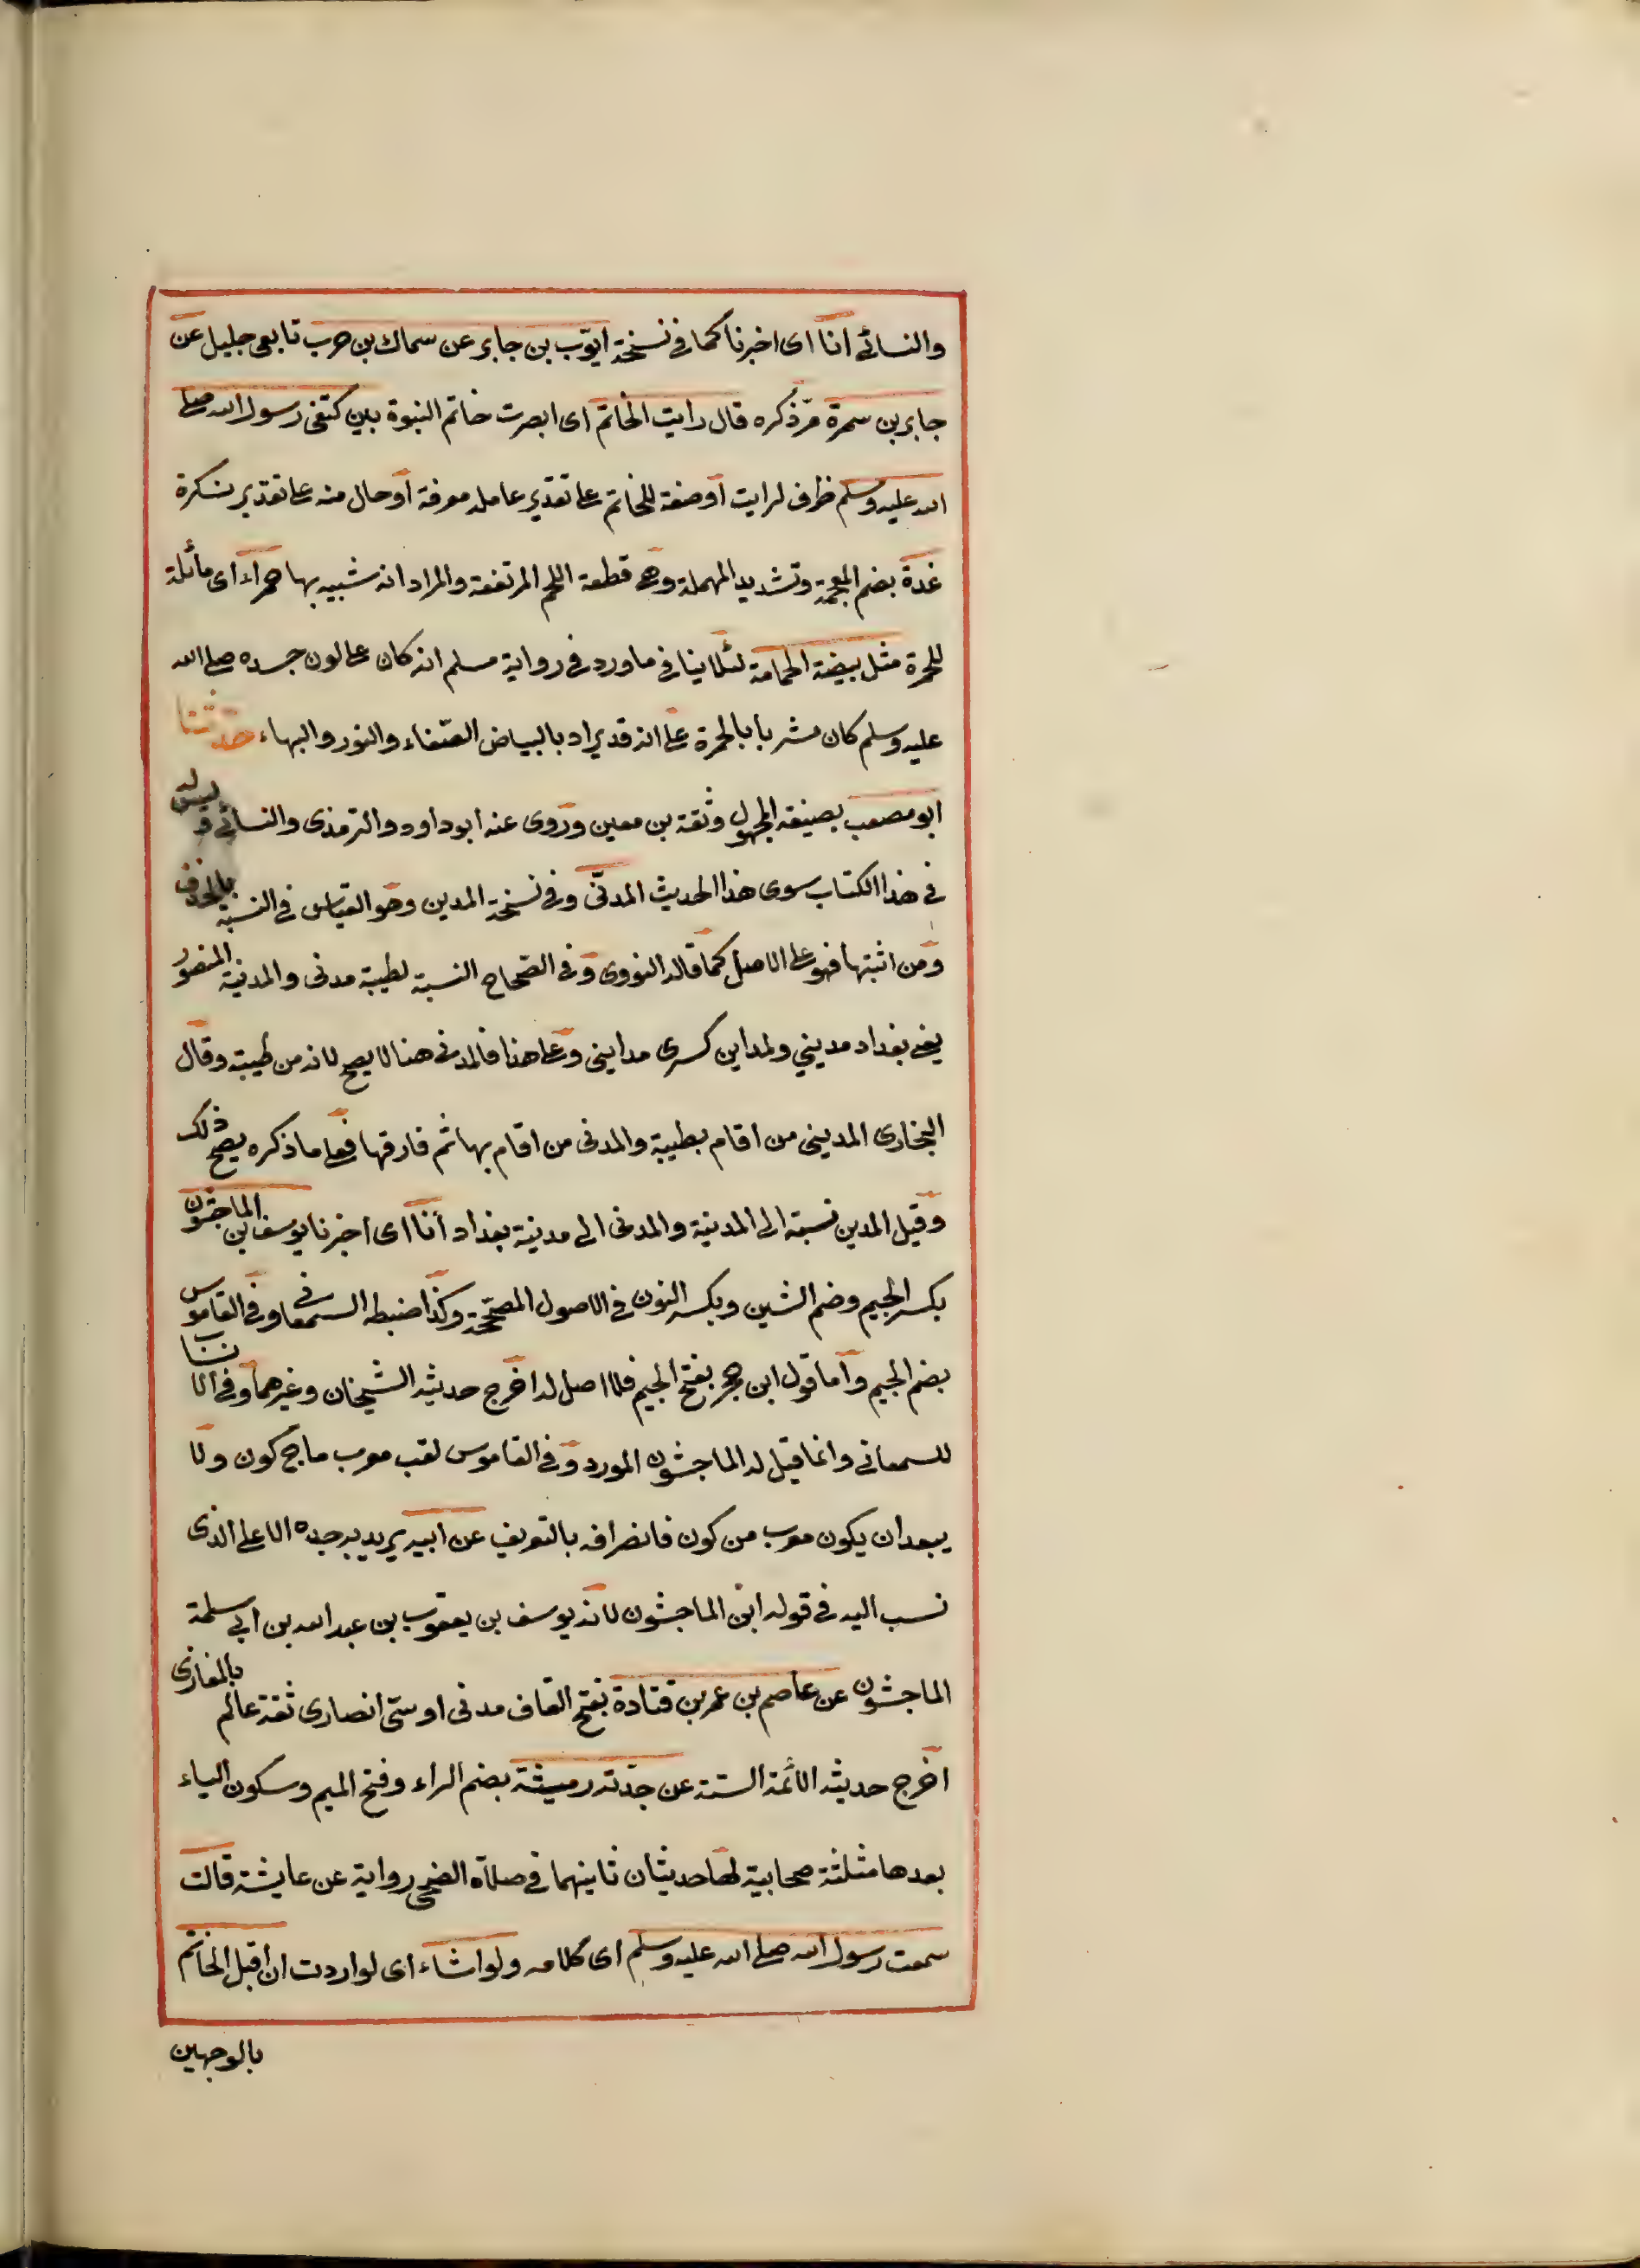 والنسائى انا اى اخبرنا كما فى نسخة ايّوب بن جابر عن سماك بن حرب تابعى جليل عن
جابر بن سمرة مرّ ذكره قال رايت الخاتم اى ابصرت خاتم النبوة بين كتفى رسول الله صلى
الله عليه وسلم ظرف لرايت أو صفة للخاتم على تقدير عامله معرفة أو حال منه على تقدير نكرة
غدة بضم المعجمة وتشديد المهملة وهى قطعة اللحم المرتفعة والمراد انه شبيه بها حمراء اى مائلة
للحمرة مثل بيضة الحمامة لئلا ينافى ما ورد فى رواية مسلم انه كان على لون جسده صلى الله
عليه وسلم كان مشربا بالحمرة على انه قد يراد بالبياض الصّفاء والنور والبهاء حدثنا
ابو مصعب بصيغة المجهول وثقه بن معين وروى عنه ابو داود والترمذى والنسائى وليس له
فى هذا الكتاب سوى هذا الحديث المدنّى وفى نسخة المدين وهو القياس فى النسبة بالحذف
ومن اثبتها فهو على الاصل كما قاله النووى وفى الصّحاح النسبة لطيبة مدنى والمدينة المنصور
يعنى بغداد مدينى ولمداين كسرى مداينى وعلى هذا فالمدنى هنا لا يصح لانه من طيبة وقال
البخارى المدينى من اقام بطيبة والمدنى من اقام بها ثم فارقها فعلى ما ذكره يصح ذلك
وقيل المدين نسبة الى المدينة والمدنى الى مدينة بغداد أنا اى اخبرنا يوسف بن الماجشون
بكسر الجيم وضم الشين وبكسر النون فى الاصول المصحّحة وكذا ضبطه السمعانى وفى القاموس
بضم الجيم وأما قول ابن حجر بفتح الجيم فلا اصل له اخرج حديثه الشيخان وغيرهما وفى الانساب
للسمعانى وانما قيل له الماجشون المورد وفى القاموس لقب معرب ماج كون ولا
يبعد ان يكون معرب من كون فانصرافه بالتعريف عن ابيه يريد به جده الاعلى الذى
نسب اليه فى قوله ابن الماجشون لانه يوسف بن يعقوب بن عبد الله بن ابى سلمة
الماجشون عن عاصم بن عمر بن قتادة بفتح القاف مدنى اوسّى انصارى ثقة عالم بالمغازى
اخرج حديثه الائمة الستة عن جدّته رميثة بضم الراء وفتح الميم وسكون الياء
بعدها مثلثة صحابية لها حديثان ثانيهما فى صلاة الضحى رواية عن عايشة قالت
سمعت رسول الله صلى الله عليه وسلم اى كلامه ولو اشاء اى لو اردت ان اقبل الخاتم
بالوجهين